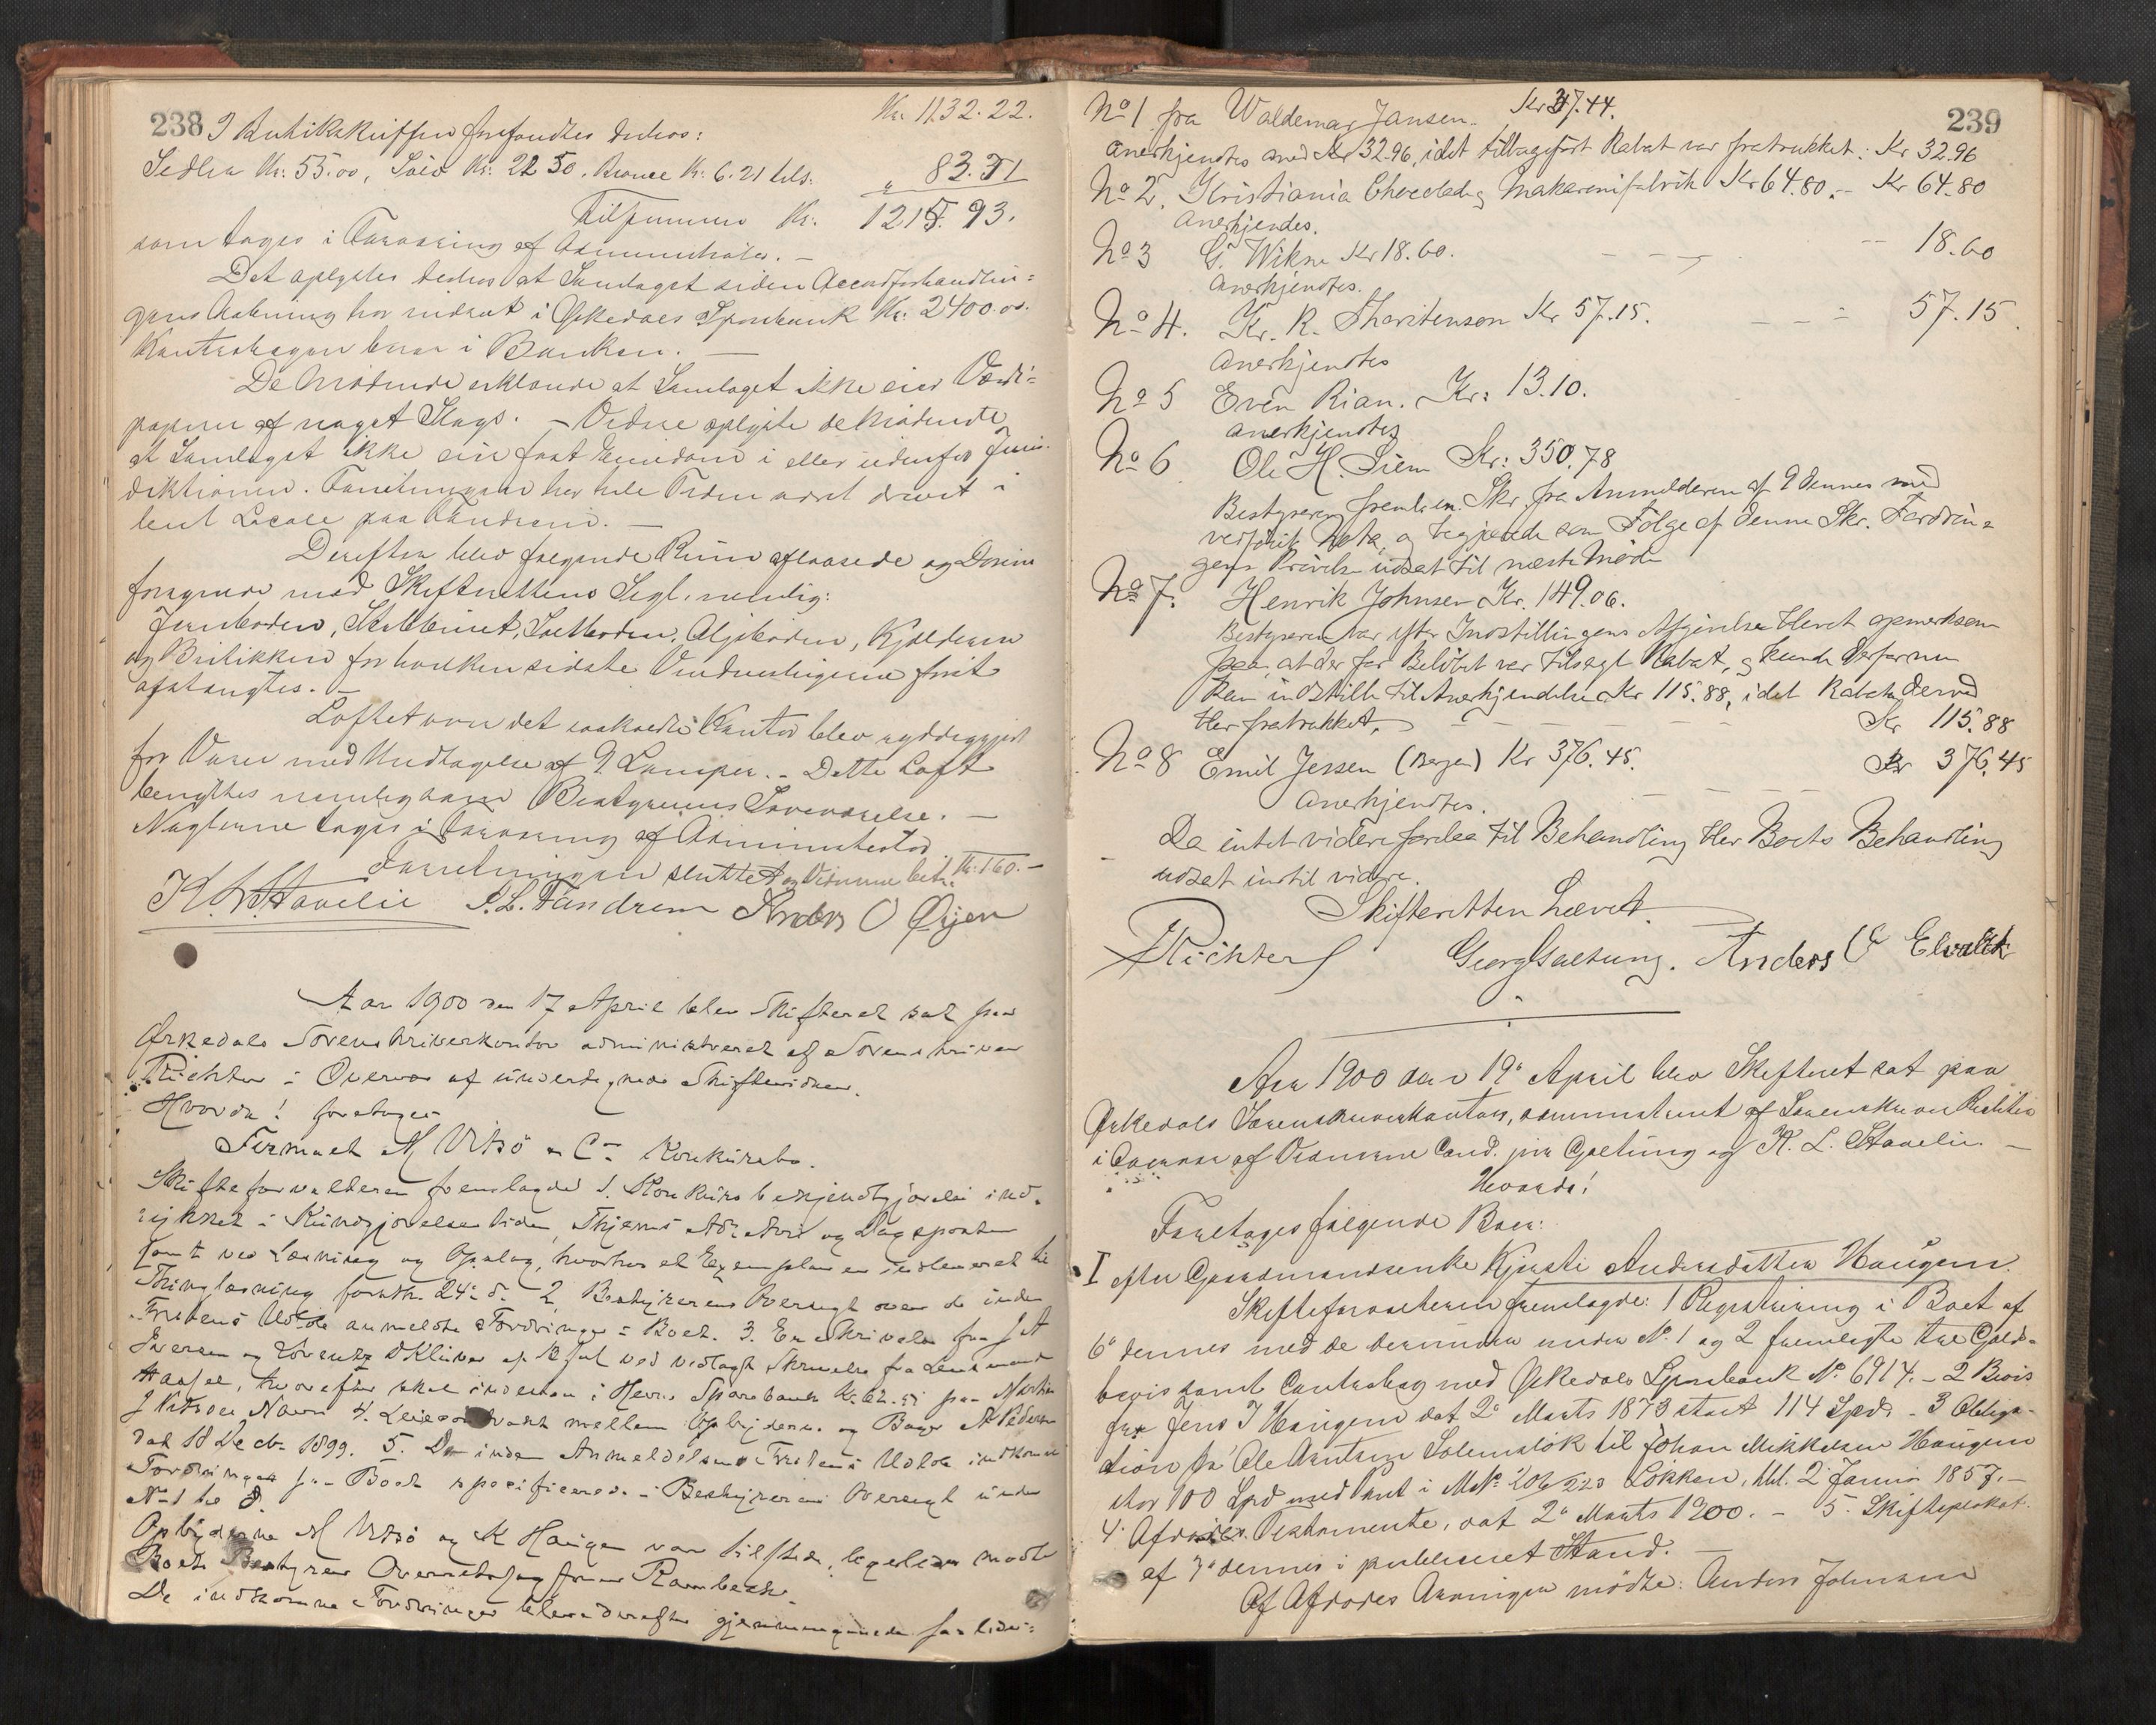 238
Kr. 1132.22.
I Butikskuffen forefandtes derhos:
Sedler Kr. 55.00, Sølv Kr. 22 50. Bronce Kr. 6.21 tils. " 83.71
Tilsammen Kr. 1215.93.
som tages i Forvaring af Administrator. –
Det oplystes derhos at Samlaget siden Accordforhandlin=
gens Aabning har indsat i Ørkedals Sparebank Kr. 2400.00.
Kontrabogen beror i Banken. –
De Mødende erklærede at Samlaget ikke eier Værdi=
papirer af noget Slags. – Videre oplyste de Mødende
at Samlaget ikke eier fast Eiendom i eller udenfor Juris-
diktionen. Forretningen har hele Tiden været drevet i
leiet Locale paa Fandrem. –
Derefter blev følgende Rum aflaasede og Dørene
forsynede med Skifterettens Segl, nemlig:
Jernboden, Stabburet, Saltboden, Oljeboden, Kjælderen
og Butikken for hvilken sidste Vinduerslugerne først
afstængtes. –
Loftet over det saakaldte Kontor blev ryddiggjort
for Varer med Undtagelse af 9 Lamper. – Dette Loft
benyttes nemlig som Bestyrerens Soveværelse. –
Nøglerne tages i Forvaring af Administrator
Forretningen sluttet og Vidnerne bet. Kr. 1.60. –
K. L. Stavelie P. L. Fandrem Anders O Øyen
Aar 1900 den 17 April blev Skifteret sat paa
Ørkedals Sorenskriverkontor administreret af Sorenskriver
Richter i Overvær af undertegnede Skiftevidner.
Hvorda! foretoges
Firmaet M Vitsö & Co Konkursbo.
Skifteforvalteren fremlagde 1. Konkursbekjendtgjørelse ind-
rykket i Kundgjørelsestidende, Thjems Adr Avis og Dagsposten
samt ved Læsning og Opslag, hvorhos et Exemplar er indleveret til
Thinglæsning førstk. 24de ds. 2. Bestyrerens Oversigt over de inden
Fristens Udløb anmeldte Fordringer i Boet. 3. En Skrivelse fra J A
Iversen og Lorentz D Klüwer af 12 Jul ved vedlagt Skrivelse fra Lensmand
Haasel, hvorefter skal indestaa i Hevne Sparebank Kr. 62. paa Martin
J Vitsøes Navn 4. Leiekontrakt mellem Opbyderne og Bager A Pedersen
dat 18 Decbr 1899. 5. De inden Anmeldelsens Fristens Udløb indkomne
Fordringer paa Boet specificerede i Bestyrerens Oversigt under
No 1 til 8.
Opbyderne M Vitsö og K Haugen var tilstede, ligeledes mødte
Boets Bestyrer Overretssagfører Rambech.
De indkomne Fordringer blev derefter gjennemgaaede saaledes:
239
No 1 fra Waldemar Jansen. Kr 37.44.
anerkjendtes med Kr 32.96, idet tilbageført Rabat var fratrukket: Kr 32.96
No 2. Kristiania Chocolade & Makaronifabrik Kr 64.80. – Kr 64.80
anerkjendes.
No 3 G. Wikne Kr 18.60. – – – 18.60
anerkjendtes.
No 4. Kr. R. Thorstenson Kr 57.15. – – – 57.15.
anerkjendtes
No 5 Even Rian. Kr: 13.10.
anerkjendtes
No 6 Ole H. Siem Kr: 350.78
Bestyreren freml. en Skr. fra Anmelderen af 9 dennes med
vedføiet Nota, og begjærede som Følge af denne Skr. Fordrin=
gens Prøvelse udsat til næste Møde
No 7. Henrik Johnsen Kr. 149.06.
Bestyreren var efter Indstillingens Afgivelse blevet opmerksom
paa, at der for Beløbet var tilsagt Rabat, og kunde derfor nu
kun indstille til Anerkjendelse Kr 115.88, idet Rabaten derved
blev fratrukket. – – – – – Kr 115.88
No 8 Emil Jessen (Bergen) Kr 376.45. Kr 376.45
anerkjendtes. – – – –
Da intet videre forelaa til Behandling blev Boets Behandling
udsat indtil videre.
Skifteretten hævet.
Richter Georg Galtung. Anders O Elvebak
Aar 1900 den 19de April blev Skifteret sat paa
Ørkedals Sorenskriverkontor, administreret af Sorenskriver Richter
i Overvær af Vidnerne Cand. jur Galtung og K. L. Stavelie –
Hvorda!
Foretoges følgende Boer:
I efter Gaardmandsenke Kjersti Andersdatter Haugen.
Skifteforvalteren fremlagde: 1 Registrering i Boet af
6te dennes med de derunder under No. 1 og 2 fremlagte to Gjelds-
bevis samt Contrabog med Ørkedals Sparebank No. 6914. – 2 Bevis
fra Jens J Haugen dat 2den Marts 1873 stort 114 Spd. – 3 Obliga-
tion fra Ole Arntsen Solemslök til Johan Mikkelsen Haugen
stor 100 Spd med Pant i M.No. 206/223 Løkken, thl. 2 Januar 1857. –
4. Afdødes Testamente, dat 2den Marts 1900. – 5. Skifteplakat
af 7de dennes i publiceret Stand. –
Af Afdødes Arvinger mødte: Anders Johnsen